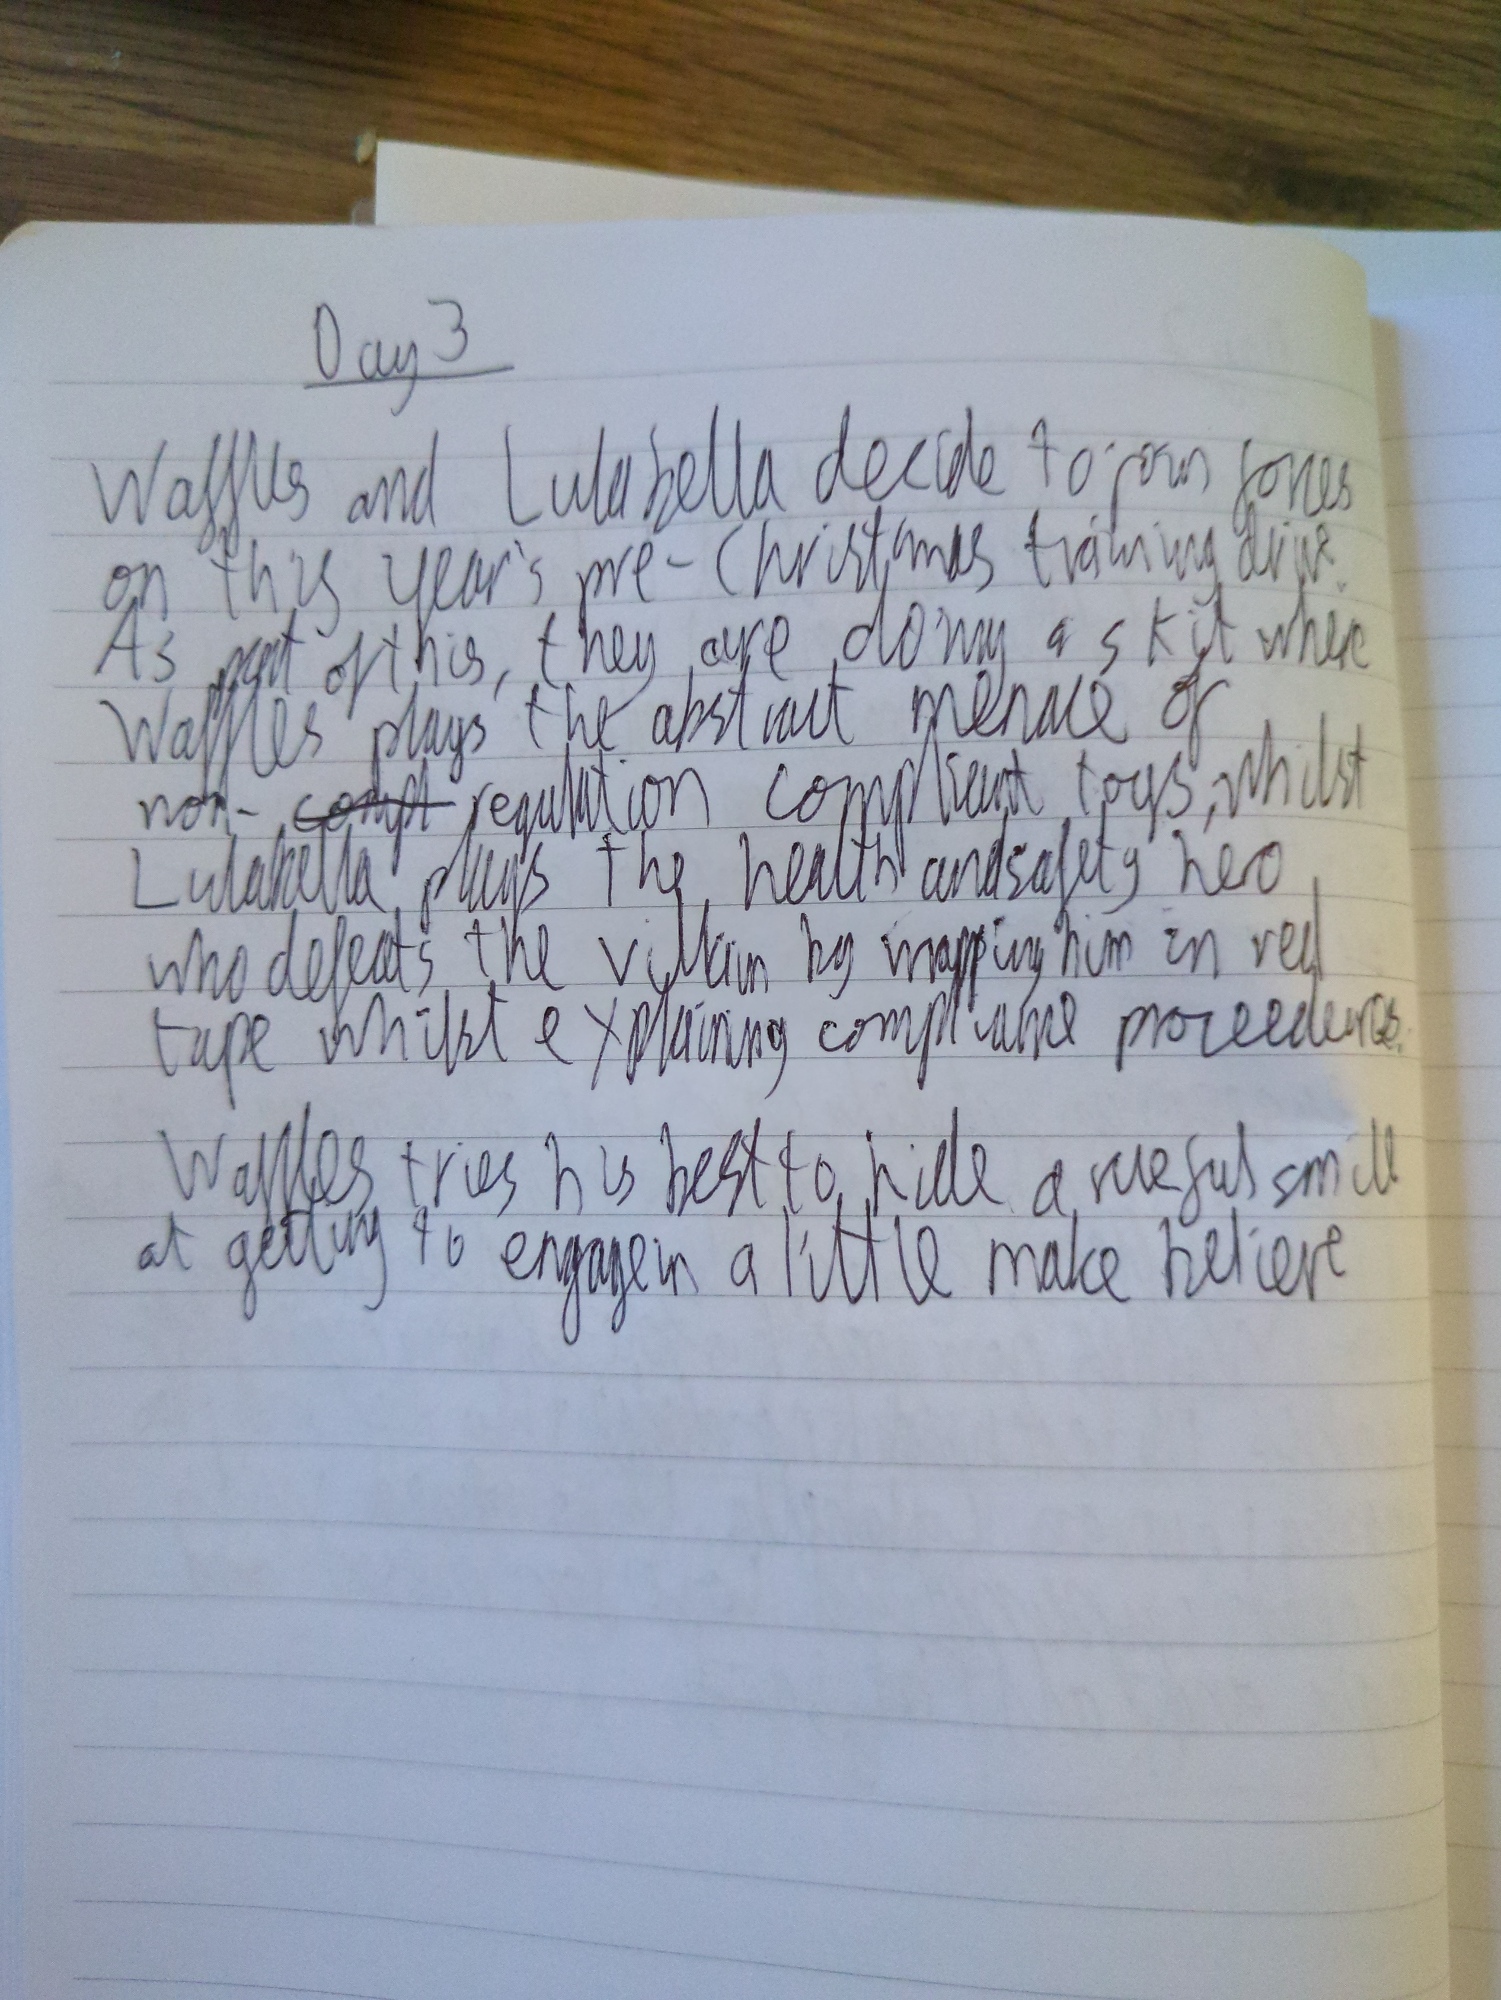 Day 3
Waffles and Lulabella decide to join forces
on this year's pre-Christmas training drive.
As part of this, they are doing a skit where
Waffles plays the abstract menace of
non- compl regulation compliant toys, whilst
Lulabella plays the health and safety hero
who defeats the villain by wrapping him in red
tape whilst explaining compliance proceedures.
Waffles tries his best to hide a rueful smile
at getting to engage in a little make believe